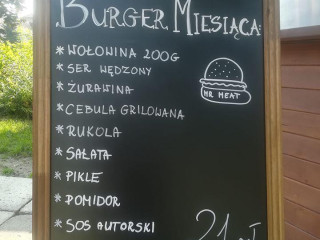 BURGER MIESIĄCA:
* WOŁOWINA 200G
* SER WĘDZONY
* ŻURAWINA
* CEBULA GRILOWANA
* RUKOLA
* SAŁATA
* PIKLE
* POMIDOR
* SOS AUTORSKI
MR MEAT
21 zł